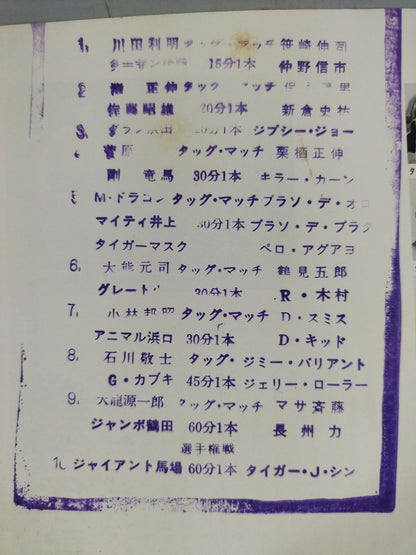 1. 川田利明 タッグ・マッチ 笹崎伸司
ターザン後藤 15分1本 仲野信市
2. 正伸 タッグ・マッチ
佐藤昭雄 20分1本 新倉史祐
3. グラン浜田 20分1本 ジプシー・ジョー
4. 菅原 タッグ・マッチ 栗栖正伸
剛 竜馬 30分1本 キラー・カーン
5 M・ドラゴン タッグ・マッチ ブラソ・デ・オロ
マイティ井上 30分1本 ブラソ・デ・プラタ
タイガーマスク ペロ・アグアヨ
6. 大熊元司 タッグ・マッチ 鶴見五郎
グレート 30分1本 R・木村
7. 小林邦昭 タッグ・マッチ D・スミス
アニマル浜口 30分1本 D・キッド
8. 石川敬士 タッグ・ ジミー・バリアント
G・カブキ 45分1本 ジェリー・ローラー
9. 天龍源一郎 タッグ・マッチ マサ斎藤
ジャンボ鶴田 60分1本 長州 力
選手権戦
10 ジャイアント馬場 60分1本 タイガー・J・シン